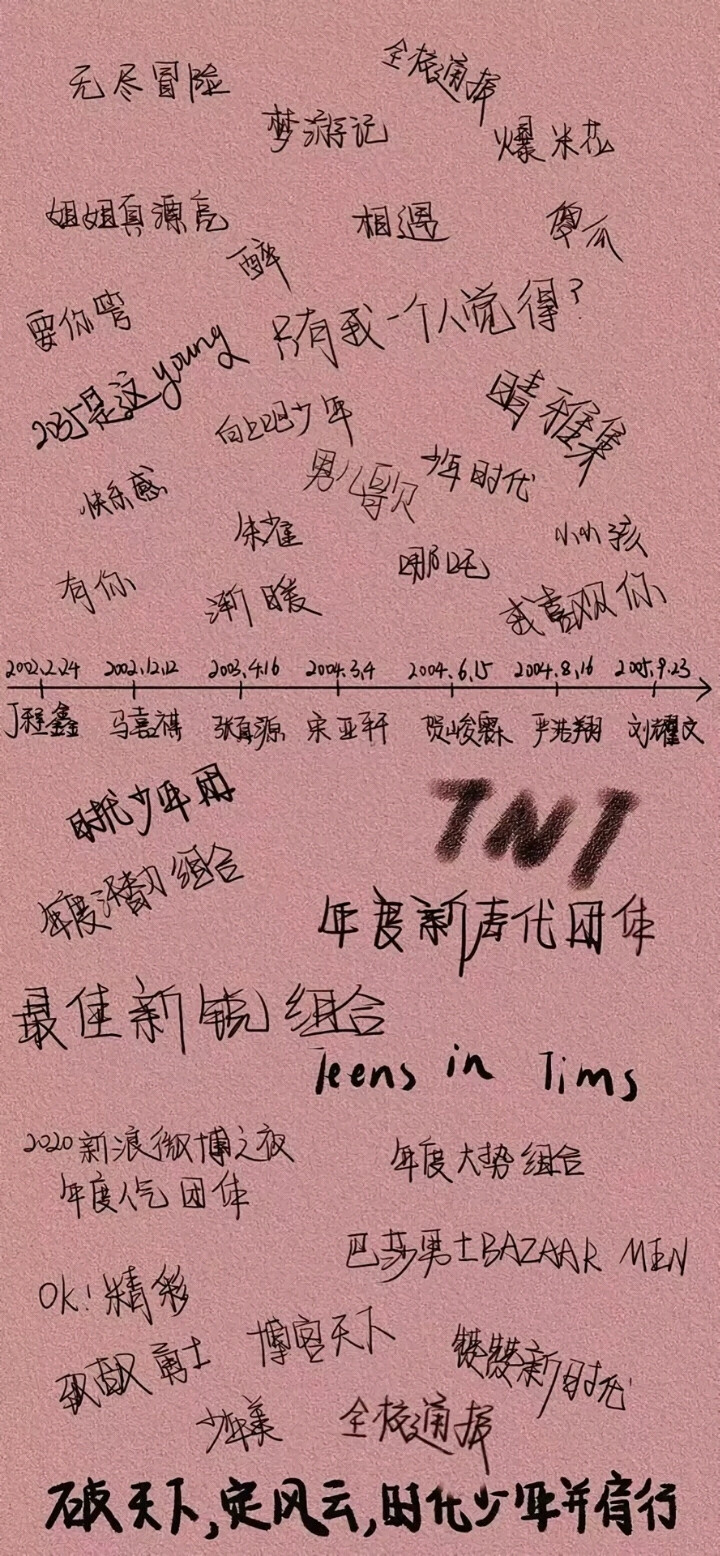 无尽冒险
全校通报
梦游记
爆米花
姐姐真漂亮
相遇
傻瓜
醉
要你管
只有我一个人觉得?
就是这young
向上吧少年
晴雅集
快乐感
男儿歌
少年时代
朱雀
哪吒
小小孩
有你
渐暖
我喜欢你
2002.2.24 2002.12.12 2003.4.16 2004.3.4 2004.6.15 2004.8.16 2005.9.23
丁程鑫 马嘉祺 张真源 宋亚轩 贺峻霖 严浩翔 刘耀文
时代少年团
TNT
年度潜力组合
年度新声代团体
最佳新锐组合
Teens in Tims
2020新浪微博之夜
年度人气团体
年度大势组合
巴莎男士BAZAAR MEN
OK!精彩
博客天下
勇士
新时代
少年美
全校通报
破天下,定风云,时代少年并肩行